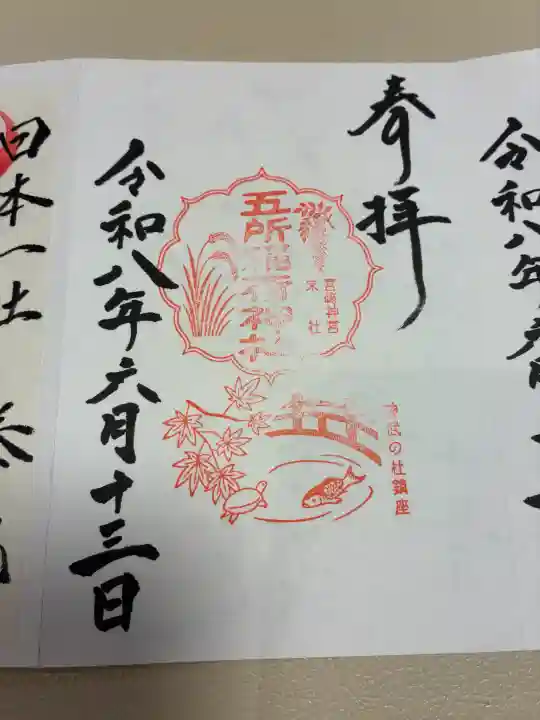 令和八年
奉拝
宮崎神宮
末社
五所稲荷神社
神武の杜鎮座
令和八年六月十三日
日本一